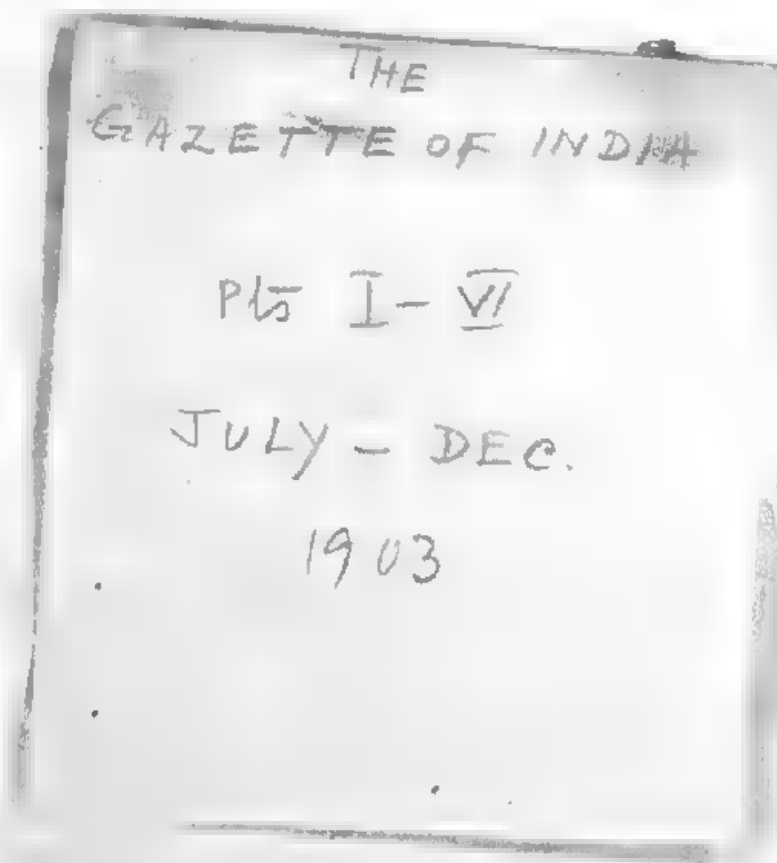 THE
GAZETTE OF INDIA
Pts I - VI
JULY - DEC.
1903